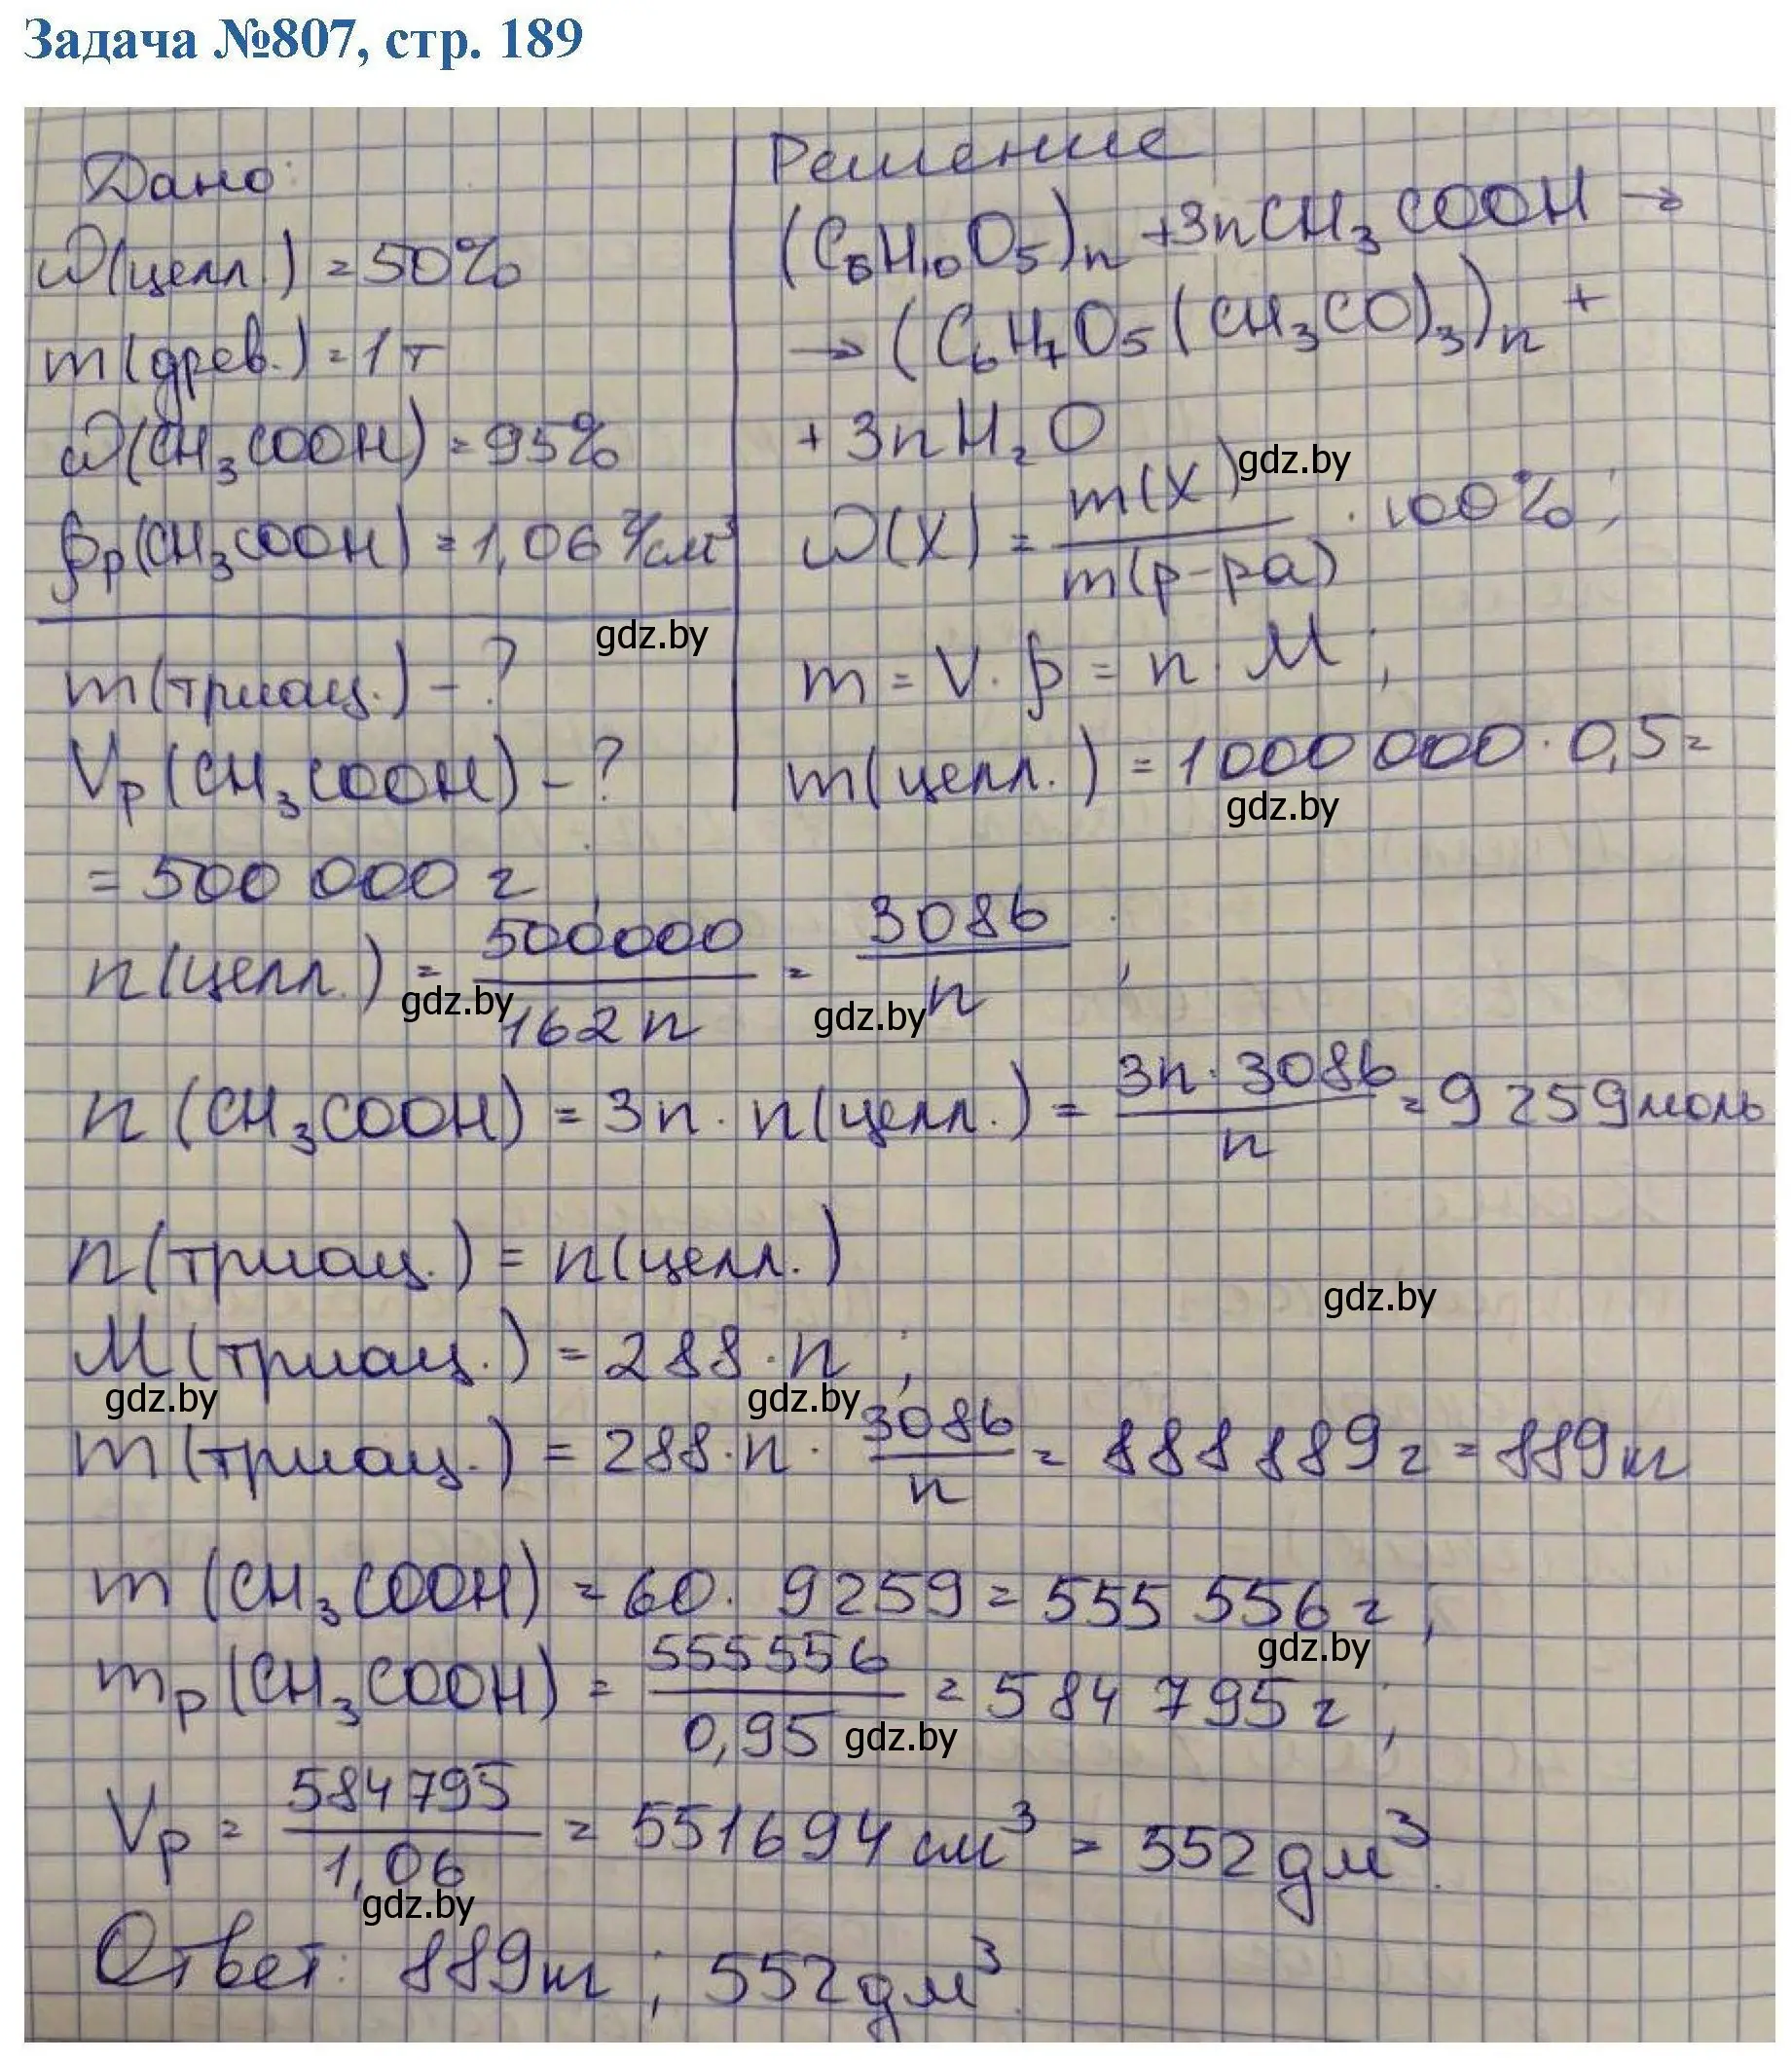 Задача №807, стр. 189
Дано:
ω(целл.) = 50%
m(древ.) = 1 т
ω(CH₃COOH) = 95%
ρр(CH₃COOH) = 1,06 г/см³
gdz.by
m(триац.) - ?
Vр(CH₃COOH) - ?
Решение
(C₆H₁₀O₅)n + 3nCH₃COOH →
→ (C₆H₇O₅(CH₃CO)₃)n +
+ 3nH₂O
gdz.by
ω(X) = m(X) / m(р-ра) · 100%;
m = V · ρ = n · M;
m(целл.) = 1000 000 · 0,5 =
gdz.by
= 500 000 г;
n(целл.) = 500000 / 162n = 3086 / n;
gdz.by gdz.by
n(CH₃COOH) = 3n · n(целл.) = 3n · 3086 / n = 9259 моль
n(триац.) = n(целл.)
gdz.by
M(триац.) = 288 · n;
gdz.by gdz.by
m(триац.) = 288 · n · 3086 / n = 888 889 г = 889 кг
m(CH₃COOH) = 60 · 9259 = 555 556 г;
gdz.by
mр(CH₃COOH) = 555556 / 0,95 = 584 795 г;
gdz.by
Vр = 584795 / 1,06 = 551694 см³ = 552 дм³.
gdz.by
Ответ: 889 кг; 552 дм³.